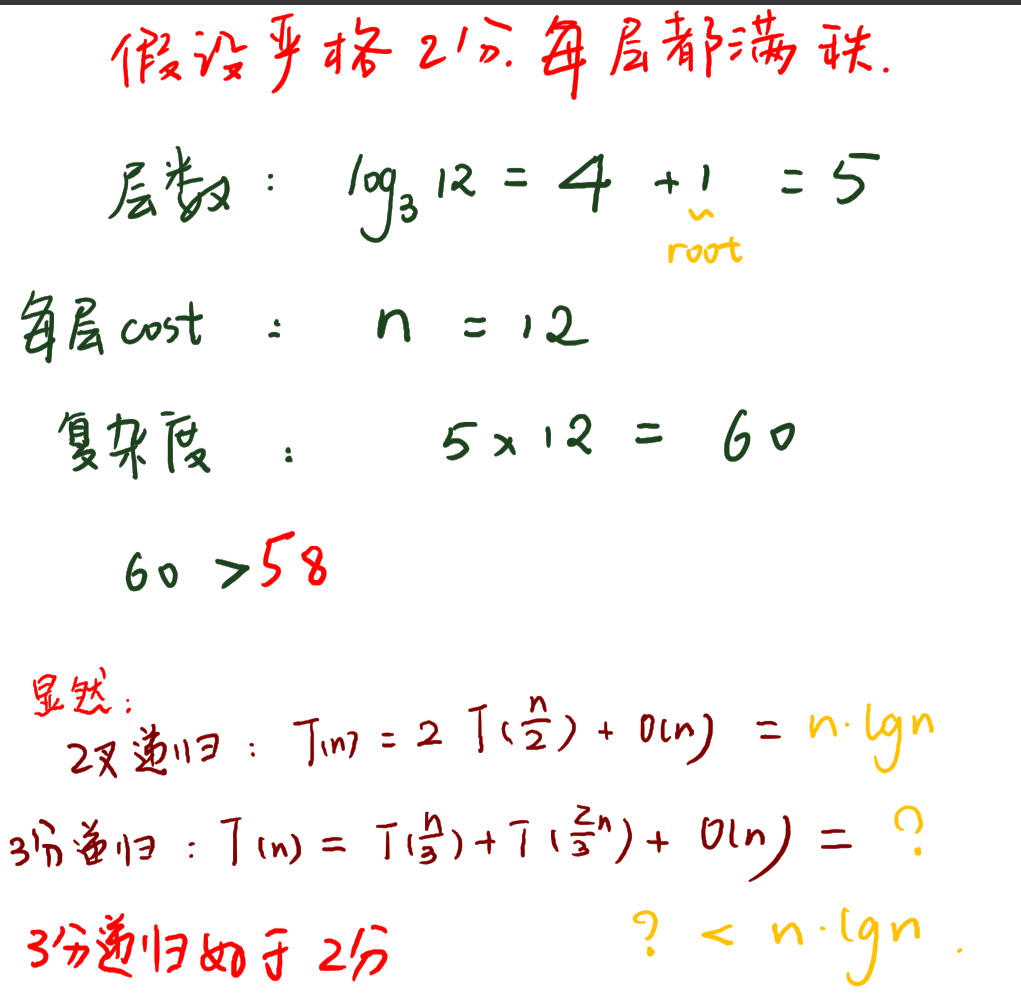 假设严格2分.每层都满秩.
层数: log₃ 12 = 4 + 1 = 5
root
每层cost : n = 12
复杂度 : 5 × 12 = 60
60 > 58
显然:
2叉递归 : T(n) = 2 T(n/2) + O(n) = n·lgn
3分递归 : T(n) = T(n/3) + T(2/3 n) + O(n) = ?
3分递归如于 2分 ? < n·lgn.